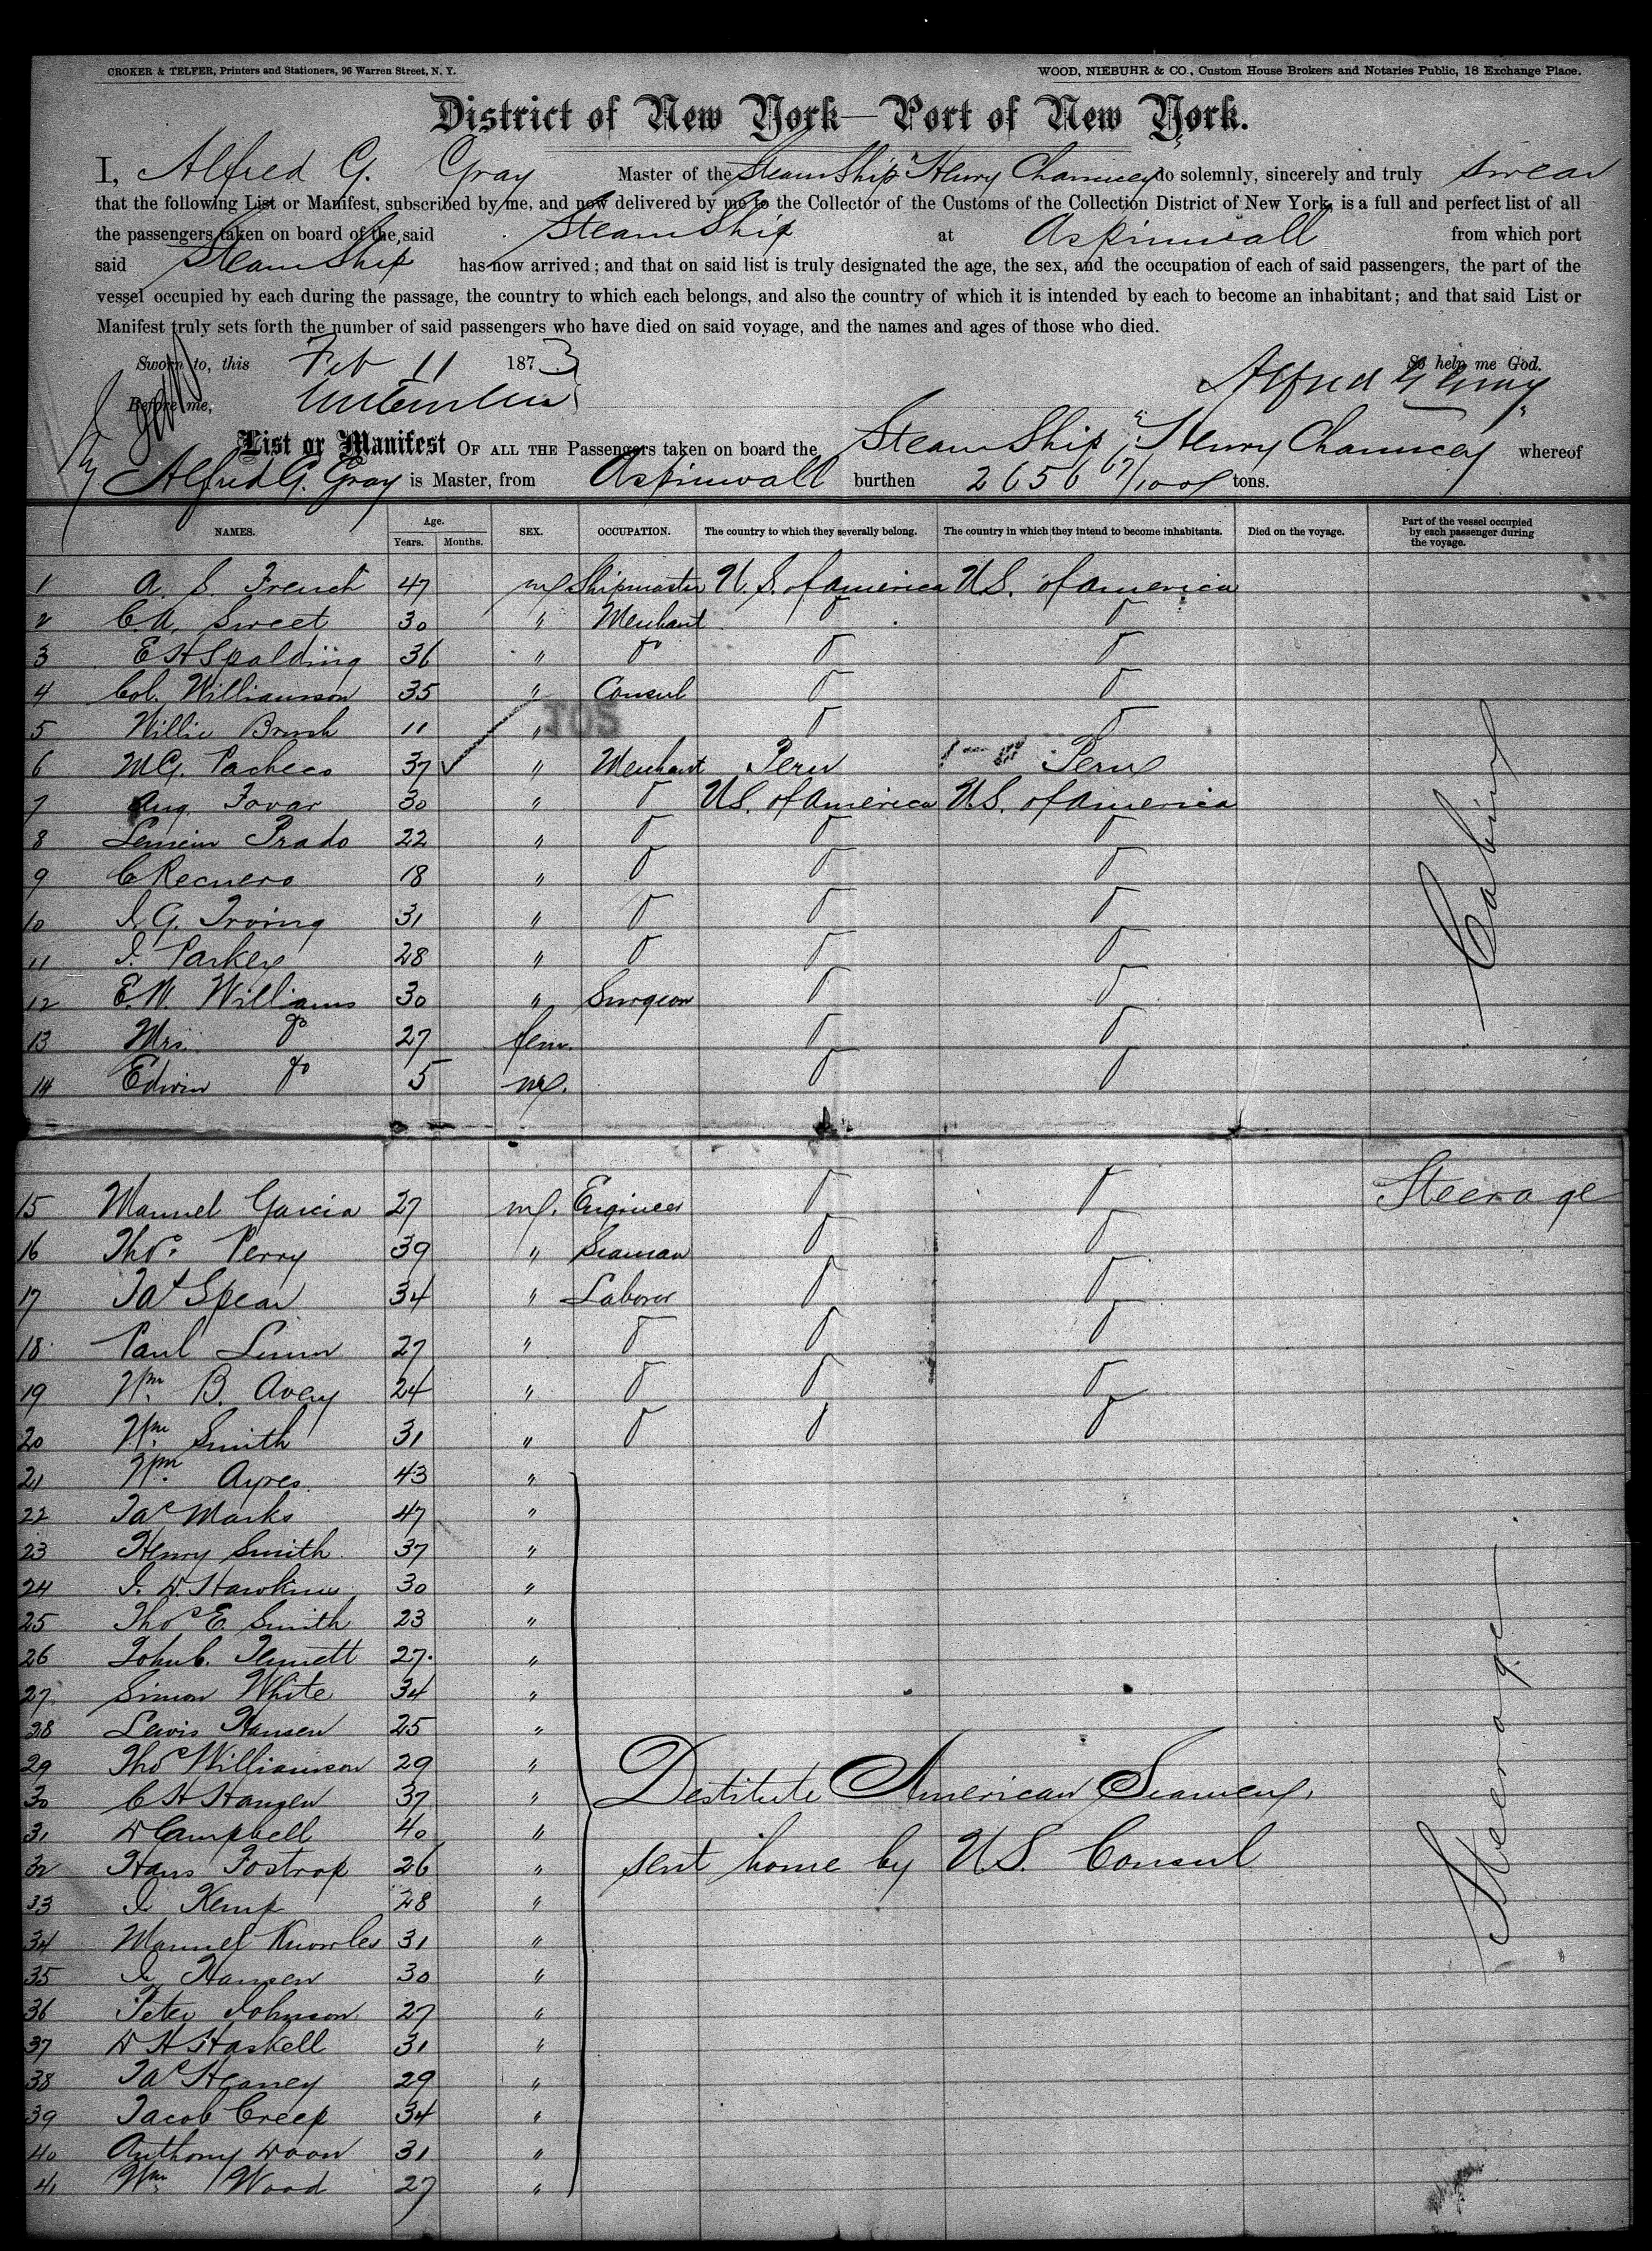 CROKER & TELFER, Printers and Stationers, 96 Warren Street, N. Y. WOOD, NIEBUHR & CO., Custom House Brokers and Notaries Public, 18 Exchange Place.
District of New York—Port of New York.
I, Alfred G. Gray Master of the Steam Ship "Henry Chauncey" do solemnly, sincerely and truly swear
that the following List or Manifest, subscribed by me, and now delivered by me to the Collector of the Customs of the Collection District of New York, is a full and perfect list of all
the passengers taken on board of the said Steam Ship at Aspinwall from which port
said Steam Ship has now arrived; and that on said list is truly designated the age, the sex, and the occupation of each of said passengers, the part of the
vessel occupied by each during the passage, the country to which each belongs, and also the country of which it is intended by each to become an inhabitant; and that said List or
Manifest truly sets forth the number of said passengers who have died on said voyage, and the names and ages of those who died.
Sworn to, this Feb 11 1873 So help me God.
Before me, Alfred G Gray
List or Manifest OF ALL THE Passengers taken on board the Steam Ship "Henry Chauncey" whereof
Alfred G. Gray is Master, from Aspinwall burthen 2656 67/100 tons.
NAMES. Age. Years. Months. SEX. OCCUPATION. The country to which they severally belong. The country in which they intend to become inhabitants. Died on the voyage. Part of the vessel occupied by each passenger during the voyage.
1 A. S. French 47 ml Shipmaster U. S. of America U.S. of America
2 C.A. Sweet 30 " Merchant " "
3 E H Spalding 36 " " " "
4 Col. Williamson 35 " Consul " "
5 Willie Brush 11 " " "
TOS
6 M G. Pacheco 37 " Merchant Peru Peru
7 Aug. Tovar 30 " " U.S. of America U.S. of America
8 Prado 22 " " " "
9 C Recuero 18 " " " "
10 I. G. Irving 31 " " " "
11 I. Parker 28 " " " "
12 E. W. Williams 30 " Surgeon " "
13 Mrs. do 27 fem. " "
14 Edwin do 5 ml. " "
Cabin
15 Manuel Garcia 27 ml. Engineer " " Steerage
16 Thos. Perry 39 " Seaman " "
17 Jas Spear 34 " Laborer " "
18 Paul 27 " " " "
19 Wm. B. Avery 24 " " " "
20 Wm. Smith 31 " " " "
21 Wm. Ayres 43 "
22 Jas Marks 47 "
23 Henry Smith 37 "
24 I. W. Hawkins 30 "
25 Thos E. Smith 23 "
26 John C. 27. "
27 Simon White 34 "
28 Lewis Hansen 25 "
29 Thos Williamson 29 "
30 C H Hangen 37 " Destitute American Seamen,
31 W Campbell 40 "
32 Hans Fostrop 26 " sent home by U.S. Consul
33 I Kemp 28 "
34 Manuel Knowles 31 "
35 I. Hansen 30 "
36 Peter Johnson 27 "
37 W H Haskell 31 "
38 Jas Heaney 29 "
39 Jacob Creep 34 "
40 Anthony 31 "
41 Wm. Wood 27 "
Steerage